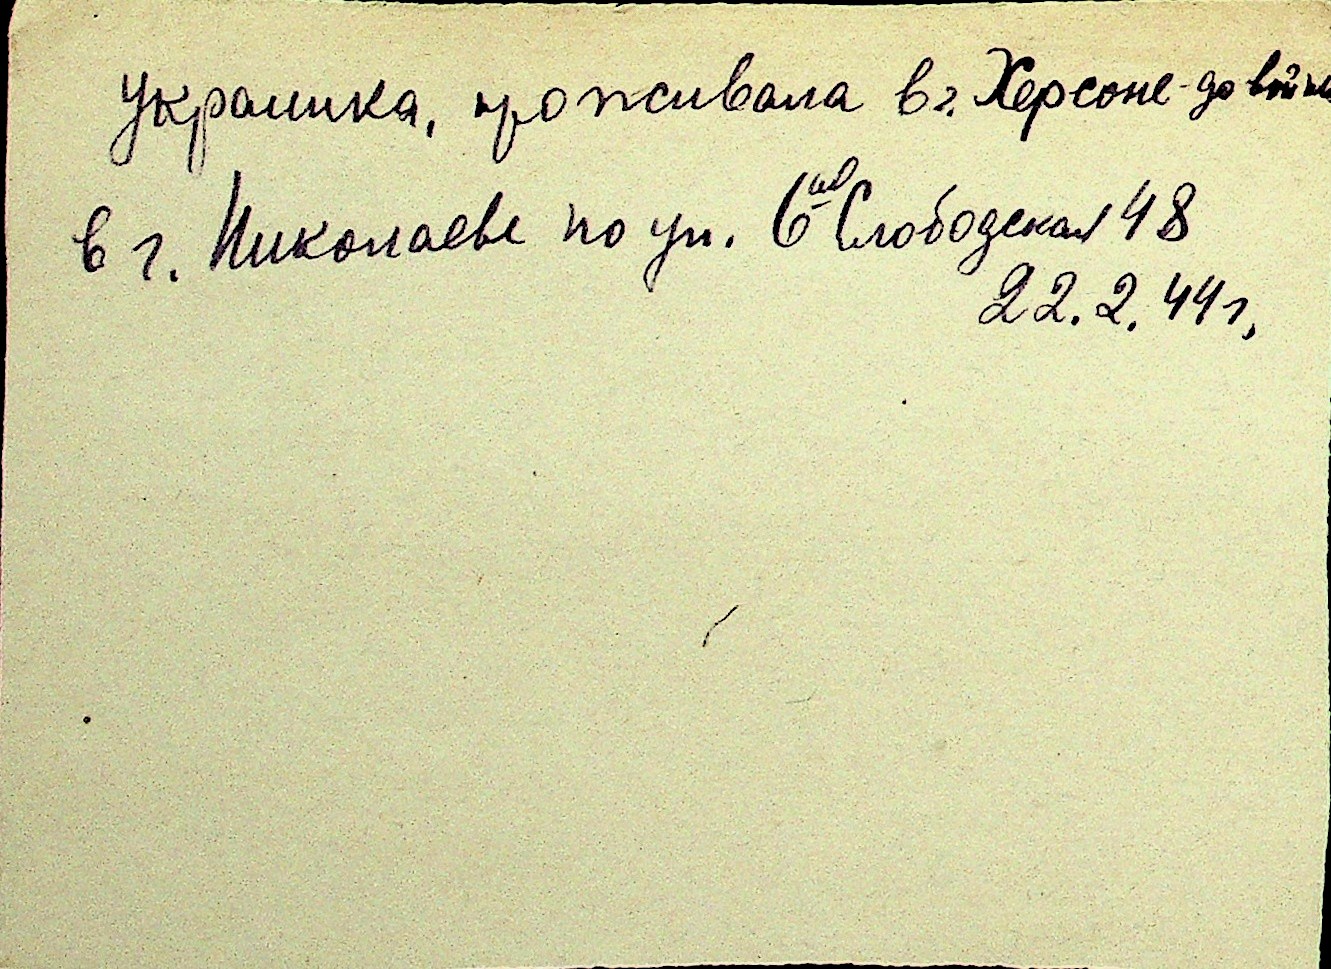 Украинка, проживала в г. Херсоне - до войны
в г. Николаеве по ул. 6ая Слободская 48
22.2.44 г.